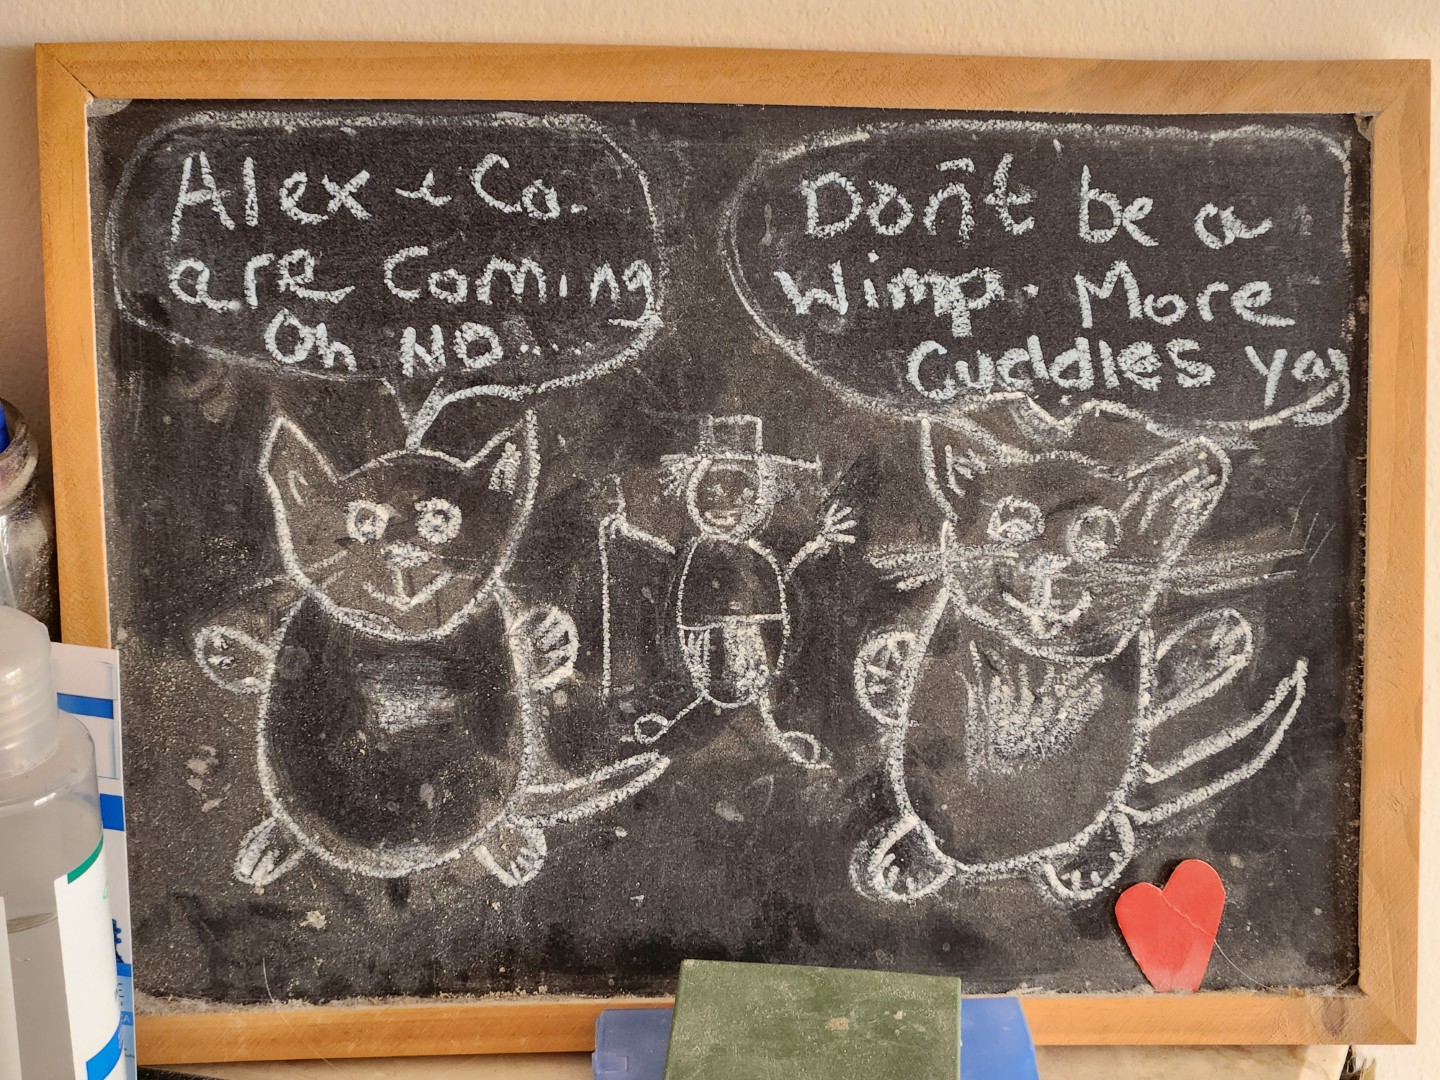 Alex & Co.
are coming
Oh NO.....
Don't be a
Wimp. More
Cuddles yay